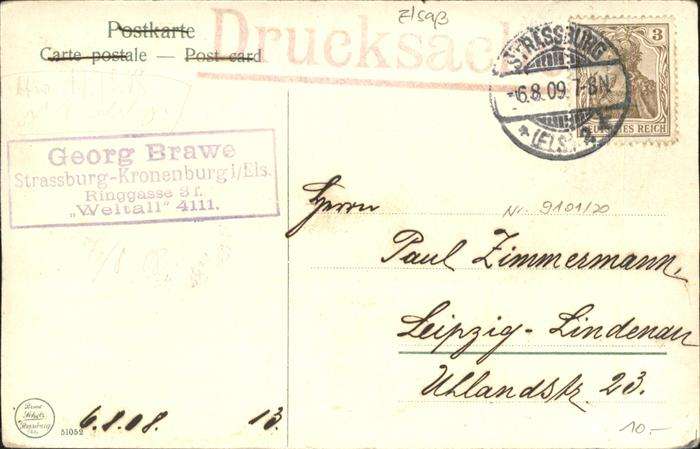 Elsaß
Postkarte
Carte postale — Post card
Drucksache
3
DEUTSCHES REICH
STRASSBURG
-6.8.09.7-8N.
* (ELS.) 2 k
Georg Brawe
Strassburg-Kronenburg i/Els.
Ringgasse 3 r.
„Weltall" 4111.
Herrn
Nr. 9101/20
Paul Zimmermann,
Leipzig-Lindenau
Uhlandstr. 23.
51052
6.8.08. 13.
10.-